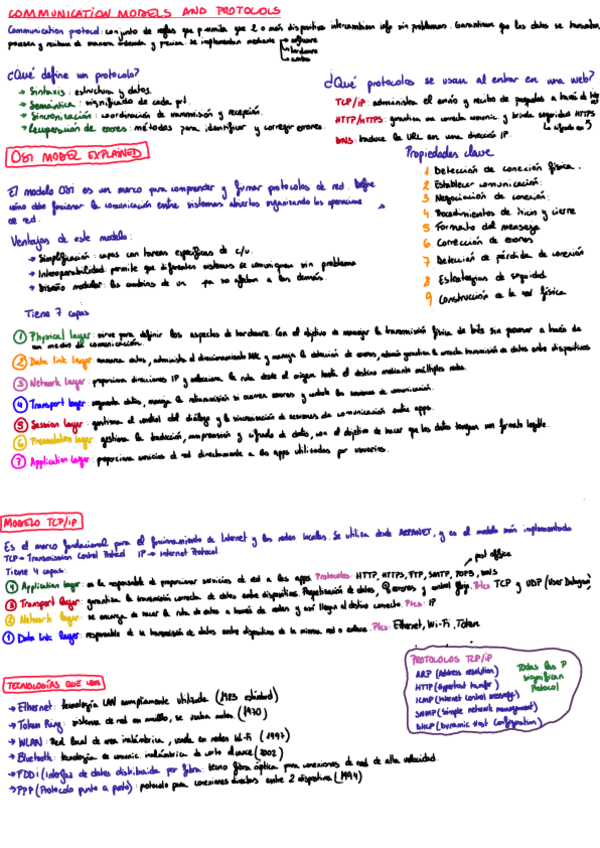 COMMUNICATION MODELS AND PROTOCOLS
Communication protocol: conjunto de reglas que permite que 2 o más dispositivos intercambien info sin problemas. Garantizan que los datos se transmitan,
procesen y reciban de manera ordenada y precisa. Se implementan mediante → software
→ hardware
→ ambos
¿Qué define un protocolo?
→ Sintaxis: estructura y datos.
→ Semántica: significado de cada
→ Sincronización: coordinación de transmisión y recepción.
→ Recuperación de errores: métodos para identificar y corregir errores.
¿Qué protocolos se usan al entrar en una web?
TCP/IP: administra el envío y recibo de paquetes a través de
HTTP/HTTPS: garantiza una correcta comunic. y brinda seguridad HTTPS
DNS: traduce la URL en una dirección IP.
OSI MODEL EXPLAINED
El modelo OSI es un marco para comprender y formar protocolos de red. Define
cómo debe funcionar la comunicación entre sistemas abiertos organizando las operaciones
de red.
Ventajas de este modelo:
→ Simplificación: capas con tareas específicas de c/u.
→ Interoperabilidad: permite que diferentes sistemas se comuniquen sin problema
→ Diseño modular: los cambios de un no afectan a los demás.
Propiedades clave
1 Detección de conexión física.
2 Establecer comunicación.
3 Negociación de conexión.
4 Procedimientos de inicio y cierre
5 Formato del mensaje
6 Corrección de errores
7 Detección de pérdida de conexión
8 Estrategias de seguridad
9 Construcción de la red física
Tiene 7 capas
① Physical layer: sirve para definir los aspectos de hardware. Con el objetivo de manejar la transmisión física de bits sin procesar a través de
un medio de comunicación.
② Data link layer: datos, administra el direccionamiento MAC y maneja la detección de errores, garantiza la correcta transmisión de datos entre dispositivos
③ Network layer: proporciona direcciones IP y selecciona la ruta desde el origen hasta el destino mediante múltiples redes.
④ Transport layer: segmenta datos, maneja la retransmisión si ocurren errores y las sesiones de comunicación.
⑤ Session layer: gestiona el control del diálogo y la sincronización de sesiones de comunicación entre apps.
⑥ Presentation layer: gestiona la traducción, compresión y cifrado de datos, con el objetivo de hacer que los datos tengan un formato legible.
⑦ Application layer: proporciona servicios de red directamente a las apps utilizadas por usuarios.
MODELO TCP/IP
Es el marco fundacional para el funcionamiento de Internet y las redes locales. Se utiliza desde ARPANET, y es el modelo más implementado
TCP → Transmission Control Protocol IP → Internet Protocol.
Tiene 4 capas:
post office
④ Application layer: es la responsable de proporcionar servicios de red a las apps Protocolos: HTTP, HTTPS, FTP, SMTP, POP3, DNS
③ Transport layer: garantiza la transmisión correcta de datos entre dispositivos. de datos, errores y control flujo. Ptcls: TCP y UDP (User Datagram)
② Network layer: se encarga de hacer la ruta de datos a través de redes y así llegan al destino correcto. Ptcls: IP
① Data link layer: responsable de la transmisión de datos entre dispositivos de la misma red o enlace. Ptcls: Ethernet, Wi-Fi, Token
TECNOLOGÍAS QUE USA
→ Ethernet: tecnología LAN ampliamente utilizada (1983 estándar)
→ Token Ring: sistema de red en anillo, se usaba antes (1970)
→ WLAN: Red local de área inalámbrica, usada en redes Wi-Fi (1997)
→ Bluetooth: tecnología de comunic. inalámbrica de corto alcance (2002)
→ FDDI (Interfaz de datos distribuida por fibra: tecno fibra óptica para conexiones de red de alta velocidad.
→ PPP (Protocolo punto a punto): protocolo para conexiones directas entre 2 dispositivos (1994)
PROTOCOLOS TCP/IP
ARP (Address resolution)
HTTP (Hypertext transfer)
ICMP (Internet control message)
SNMP (Simple network management)
DHCP (Dynamic Host Configuration)
Todas las P
significan
Protocol